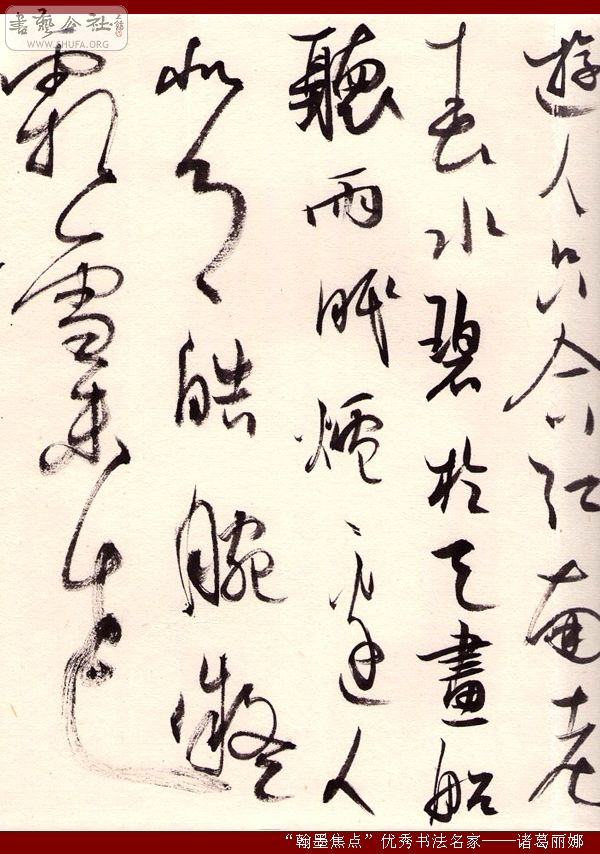 書藝公社
WWW.SHUFA.ORG
遊人只合江南老
春水碧於天畫船
聽雨眠爐邊人
似月皓腕凝
霜雪未老
“翰墨焦点”优秀书法名家——诸葛丽娜